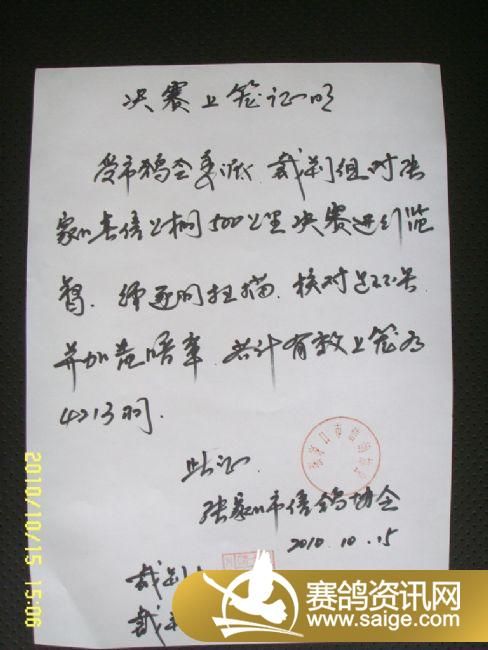 决赛上笼证明
受市鸽会委派, 裁判组对张
家口春信公棚500公里决赛进行监
督. 经逐羽扫描. 核对足环号
并加盖暗章. 共计有效上笼为
4213羽.
此证.
张家口市信鸽协会
2010.10.15
裁判
裁
2010/10/15 15:06
赛鸽资讯网
www.saige.com